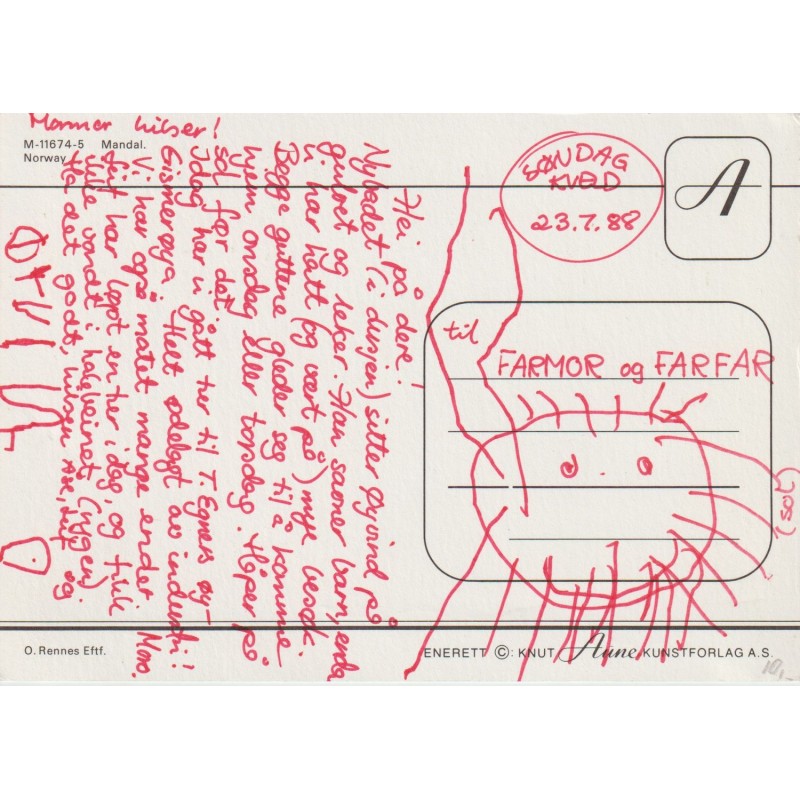 Mormor hilser!
M-11674-5 Mandal.
Norway
SØNDAG
KVELD
23.7.88
A
til
FARMOR og FARFAR
(søt)
Hei på dere!
Nybadet (i dusjen) sitter Øyvind på
gulvet og leker. Han savner barn, enda
vi har hatt (og vært på) mye besøk.
Begge guttene gleder seg til å komme
hjem onsdag eller torsdag. Håper på
sol før det.
Idag har vi gått tur til T. Egners øy-
Eisnerøya. Helt ødelagt av industri!
Vi har også matet mange ender. Mor.
har løpt en tur i dag, og fikk
ikke vondt i halebeinet (ryggen)
Ha det godt, hilsen
ØYVIND
O. Rennes Eftf.
ENERETT ©: KNUT Aune KUNSTFORLAG A.S.
10,-